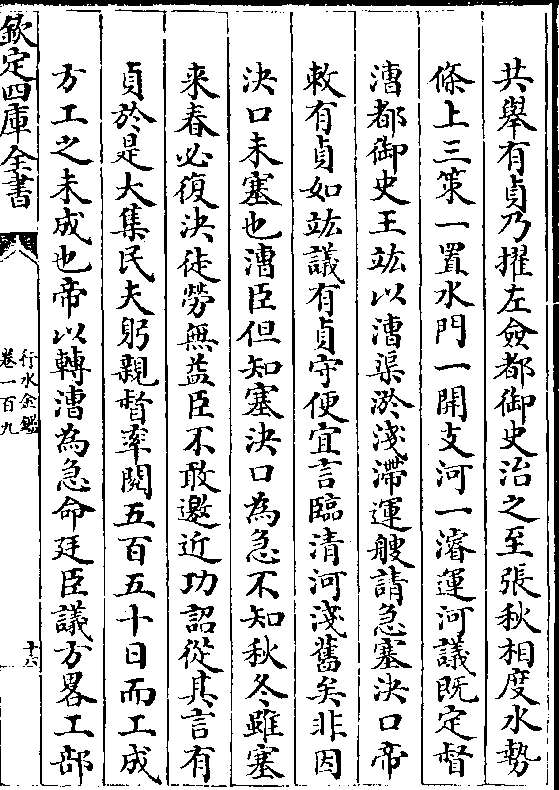 共舉有貞乃擢左僉都御史治之至張秋相度水勢
條上三策一置水門一開支河一濬運河議既定督
漕都御史王竑以漕渠淤淺滯運艘請急塞決口帝
敕有貞如竑議有貞守便宜言臨清河淺舊矣非因
決口未塞也漕臣但知塞決口為急不知秋冬雖塞
来春必復決徒勞無益臣不敢邀近功詔從其言有
貞於是大集民夫躬親督率閱五百五十日而工成
方工之未成也帝以轉漕為急命廷臣議方畧工部
欽定四庫全書
行水金鑑
卷一百九
十六